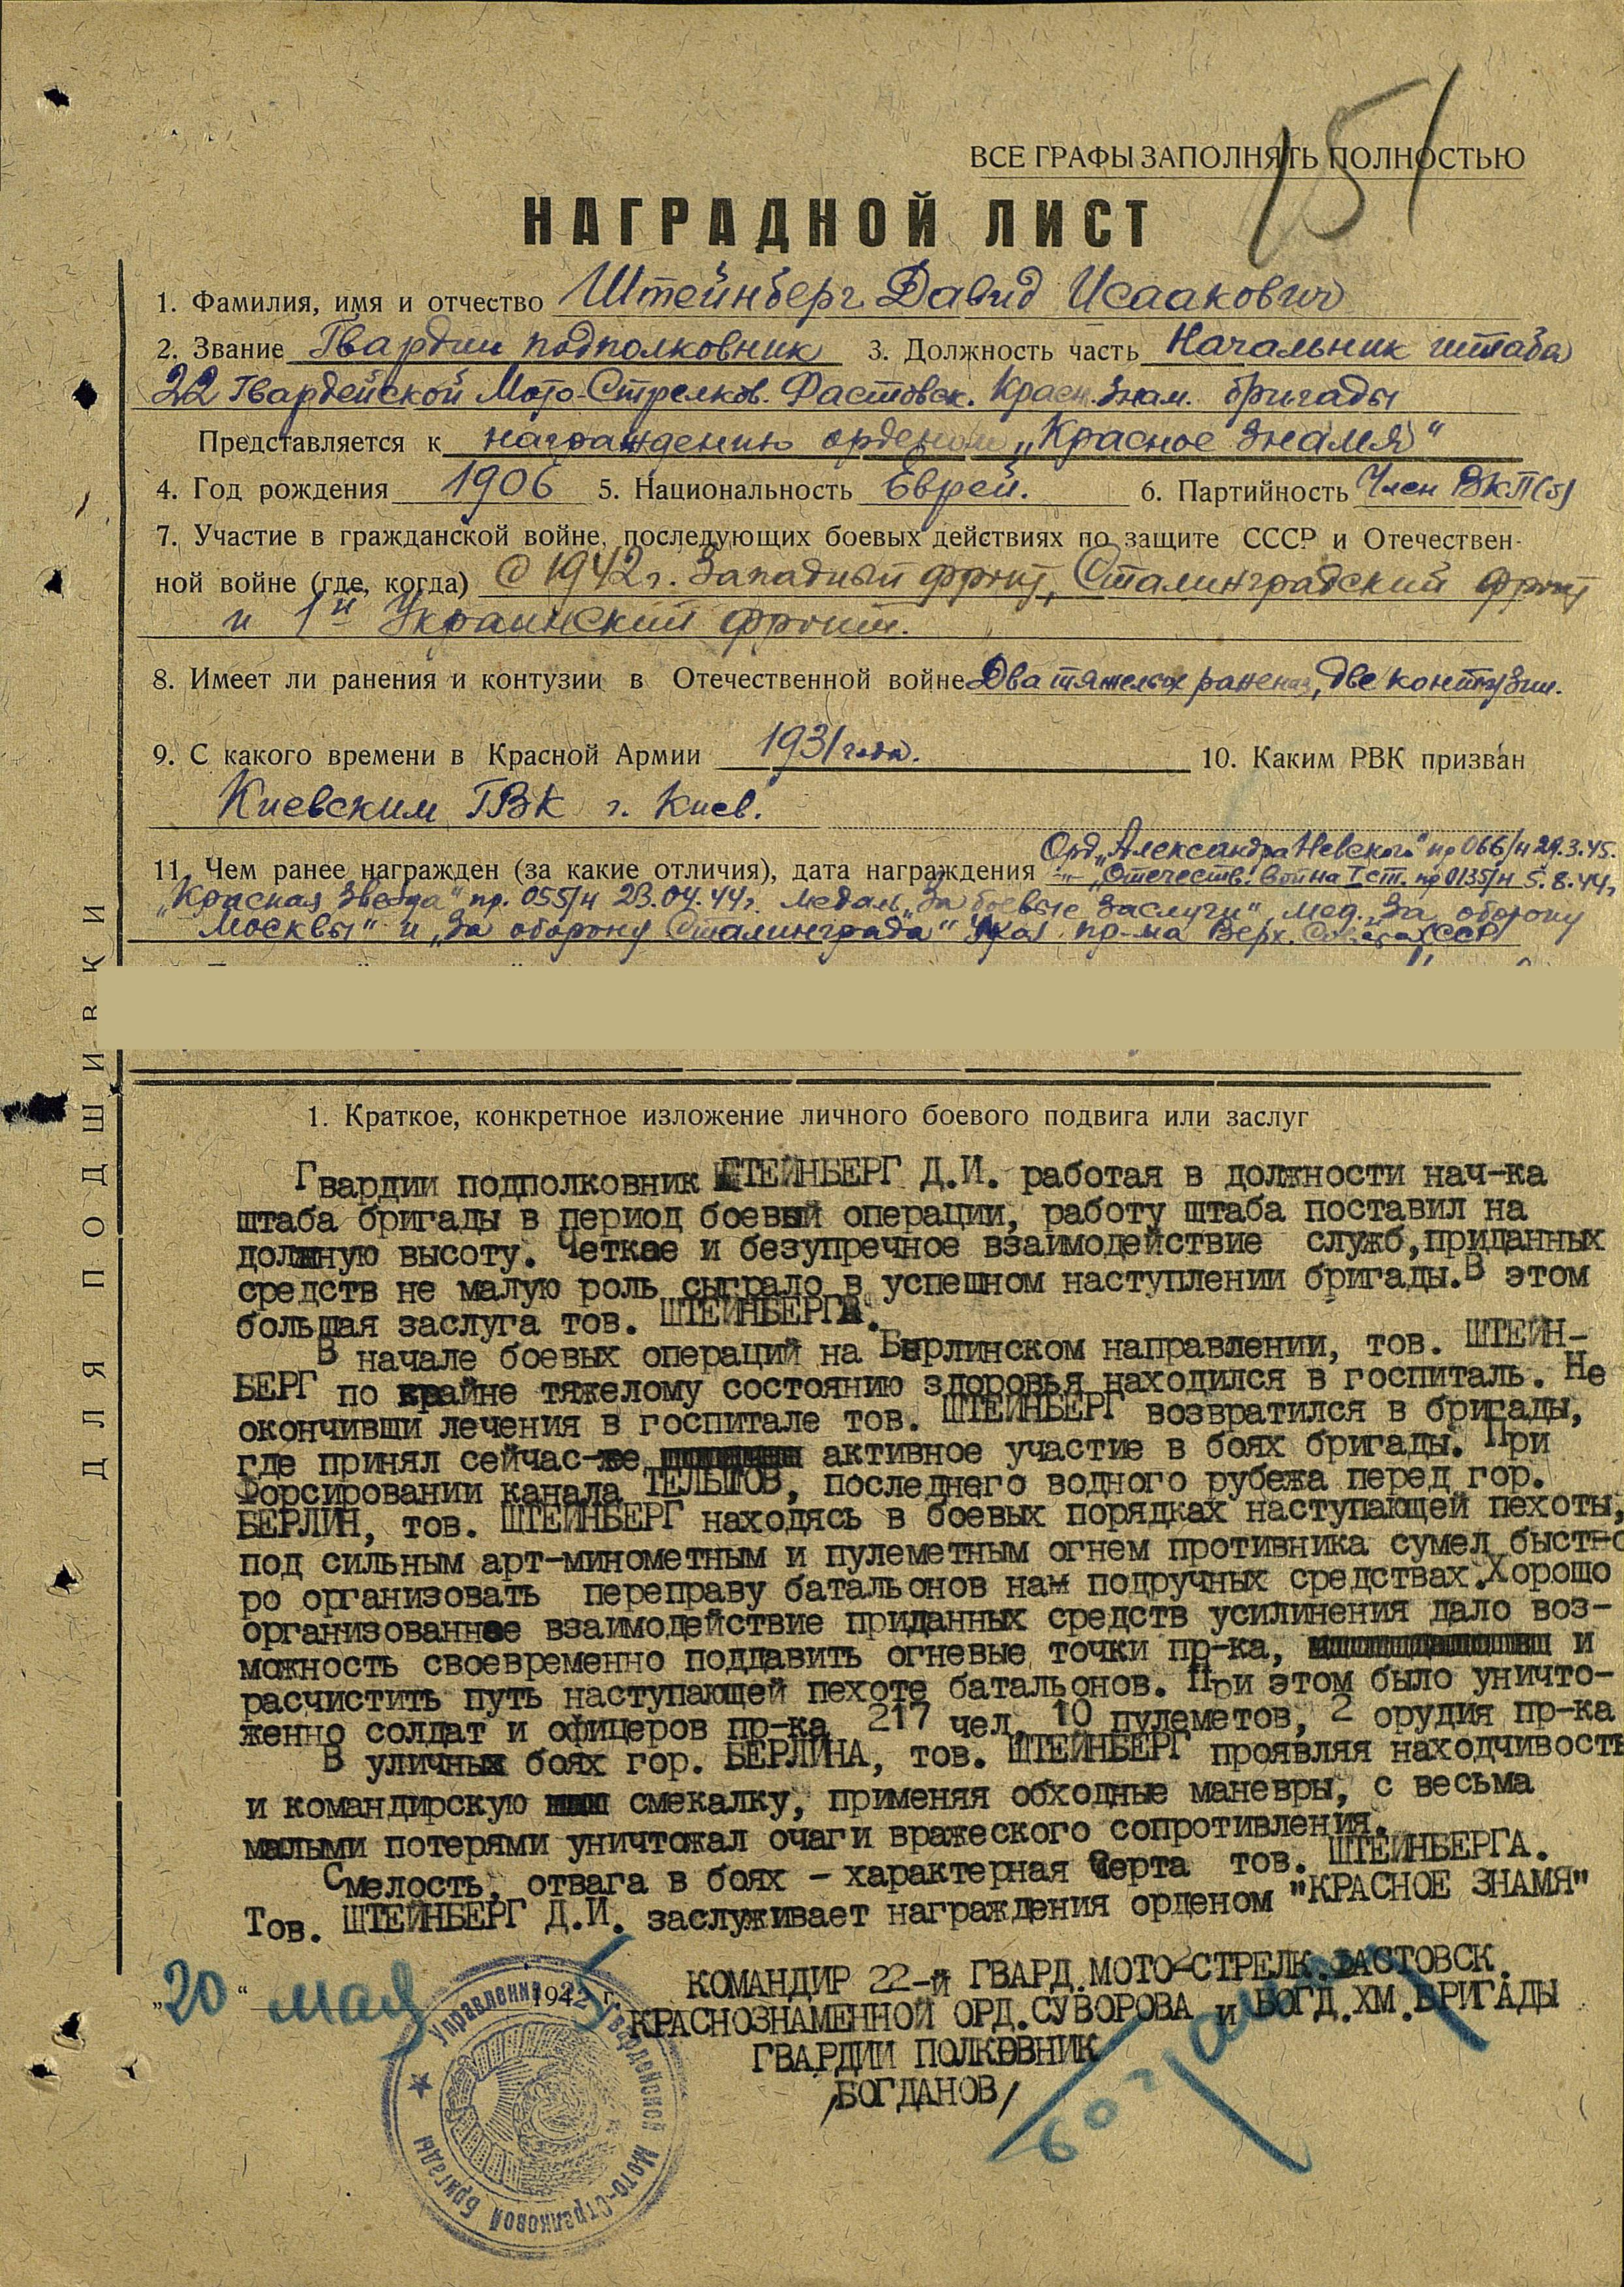 151
ВСЕ ГРАФЫ ЗАПОЛНЯТЬ ПОЛНОСТЬЮ
НАГРАДНОЙ ЛИСТ
1. Фамилия, имя и отчество Штейнберг Давид Исаакович
2. Звание Гвардии подполковник 3. Должность часть Начальник штаба
22 Гвардейской Мото-Стрелков. Фастовск. Красн. Знам. бригады
Представляется к награждению орденом „Красное Знамя“
4. Год рождения 1906 5. Национальность Еврей. 6. Партийность Член ВКП(б)
7. Участие в гражданской войне, последующих боевых действиях по защите СССР и Отечествен-
ной войне (где, когда) С 1942 г. Западный фронт, Сталинградский фронт
и 1й Украинский фронт.
8. Имеет ли ранения и контузии в Отечественной войне Два тяжелых ранения, две контузии.
9. С какого времени в Красной Армии 1931 года. 10. Каким РВК призван
Киевским ГВК г. Киев.
Орд. „Александра Невского“ пр 066/н 29.3.45.
11. Чем ранее награжден (за какие отличия), дата награждения -"- „Отечеств. Война I ст. пр 0135/н 5.8.44г
„Красная Звезда“ пр. 055/н 23.04.44г. медаль „За боевые заслуги“, мед. „За оборону
Москвы“ и „За оборону Сталинграда“ Указ пр-ма Верх. Совета СССР
ДЛЯ ПОДШИВКИ
1. Краткое, конкретное изложение личного боевого подвига или заслуг
Гвардии подполковник ШТЕЙНБЕРГ Д.И. работая в должности нач-ка
штаба бригады в период боевый операции, работу штаба поставил на
должную высоту. Четкое и безупречное взаимодействие служб,приданных
средств не малую роль сыграло в успешном наступлении бригады.В этом
большая заслуга тов. ШТЕЙНБЕРГА.
В начале боевых операций на Берлинском направлении, тов. ШТЕЙН-
БЕРГ по крайне тяжелому состоянию здоровья находился в госпиталь. Не
окончивши лечения в госпитале тов. ШТЕЙНБЕРГ возвратился в бригады,
где принял сейчас-же активное участие в боях бригады. При
Форсировании канала ТЕЛЬТОВ, последнего водного рубежа перед гор.
БЕРЛИН, тов. ШТЕЙНБЕРГ находясь в боевых порядках наступающей пехоты,
под сильным арт-минометным и пулеметным огнем противника сумел быст-
ро организовать переправу батальонов на подручных средствах.Хорошо
организованное взаимодействие приданных средств усилинения дало воз-
можность своевременно поддавить огневые точки пр-ка, и
расчистить путь наступающей пехоте батальонов. При этом было уничто-
женно солдат и офицеров пр-ка 217 чел, 10 пулеметов, 2 орудия пр-ка
В уличных боях гор. БЕРЛИНА, тов. ШТЕЙНБЕРГ проявляя находчивость
и командирскую смекалку, применяя обходные маневры, с весьма
малыми потерями уничтожал очаги вражеского сопротивления.
Смелость, отвага в боях - характерная черта тов. ШТЕЙНБЕРГА.
Тов. ШТЕЙНБЕРГ Д.И. заслуживает награждения орденом "КРАСНОЕ ЗНАМЯ"
КОМАНДИР 22-й ГВАРД.МОТО-СТРЕЛК.ФАСТОВСК.
„20“ мая 1945 г.
КРАСНОЗНАМЕННОЙ ОРД.СУВОРОВА и БОГД.ХМ.БРИГАДЫ
ГВАРДИИ ПОЛКОВНИК
/БОГДАНОВ/
Управление Гвардейской Мото-Стрелковой Бригады